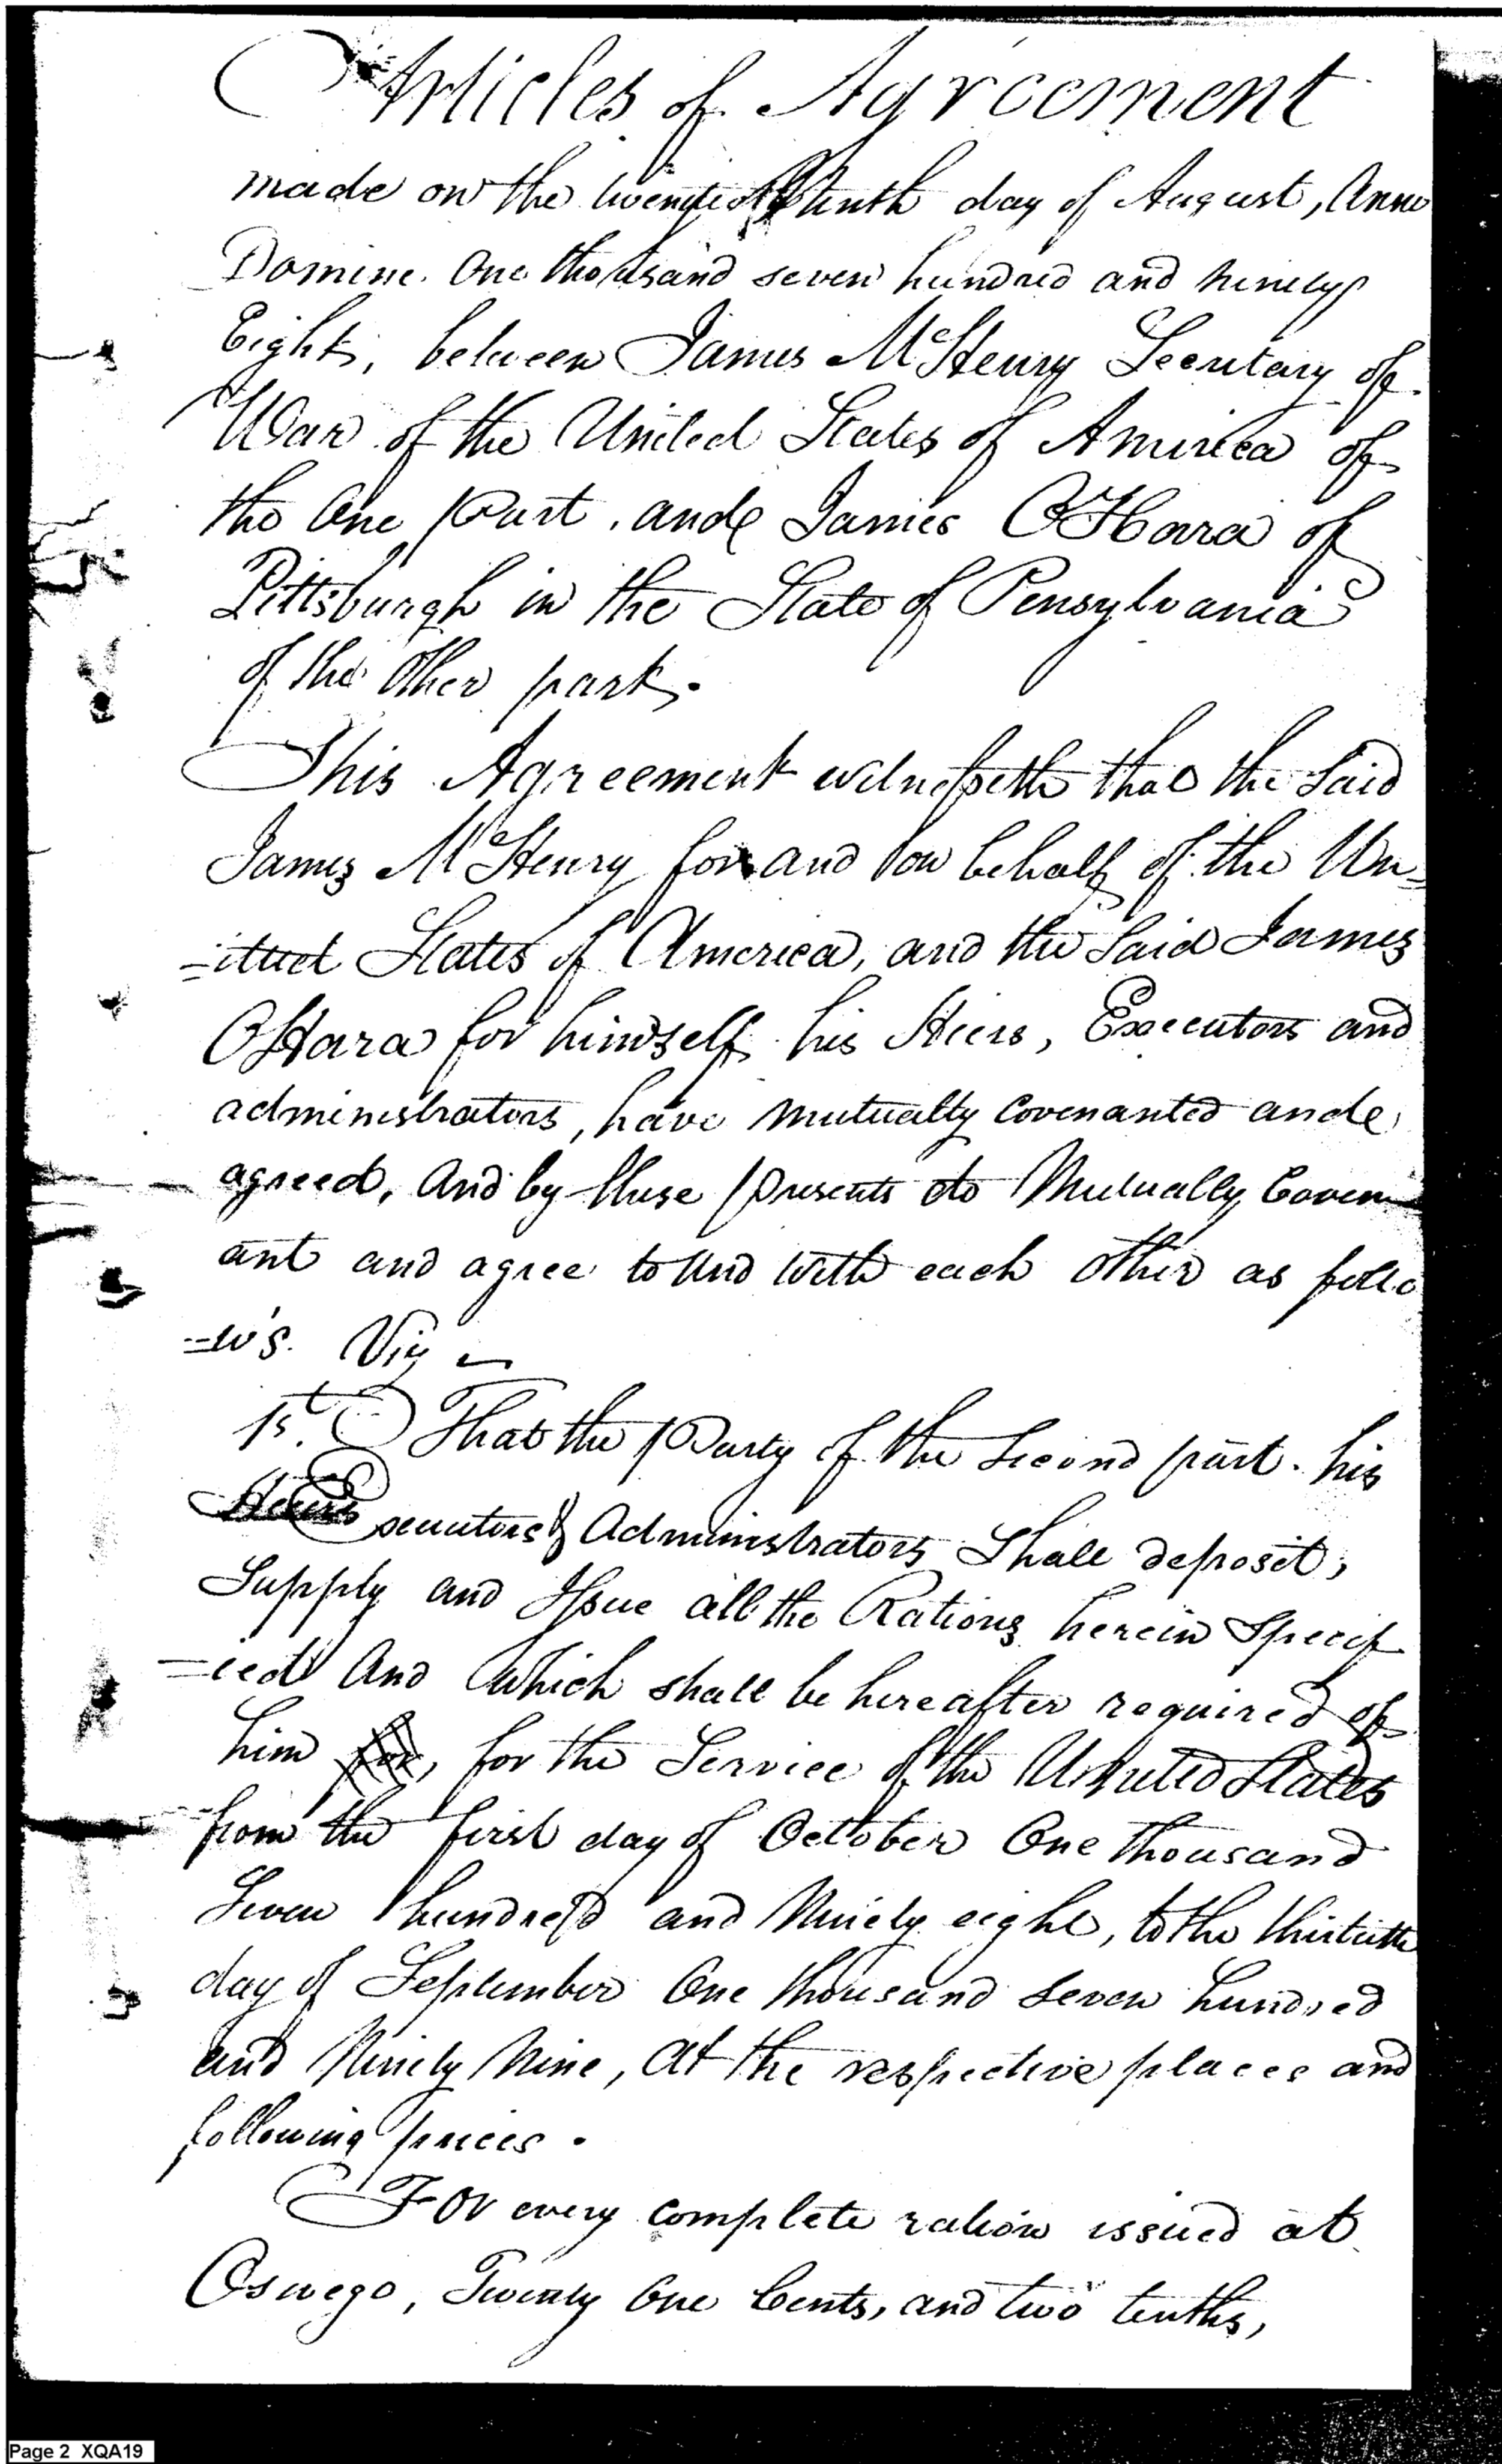 Articles of Agreement
made on the twenty ninth day of August, Anno
Domine. One thousand seven hundred and ninety
Eight, between James McHenry Secretary of
War of the United States of America of
the One part, and James OHara of
Pittsburgh in the State of Pensylvania
of the Other part.
This Agreement witnesseth that the Said
James McHenry for and on behalf of the Un=
=ited States of America, and the Said James
OHara for himself his Heirs, Executors and
administrators, have mutually Covenanted and
agreed, And by these presents do Mutually Coven
ant and agree to and with each other as follo
=w's. Viz
1st. That the Party of the Second part. his
Heirs Executors & Administrators Shall deposit,
Supply and Issue all the Rations herein Specif
=ied And which shall be hereafter required of
him for, for the Service of the United States
from the first day of October One thousand
Seven hundred and Ninety eight, to the thirtieth
day of September One thousand Seven hundred
and Ninety Nine, At the respective places and
following prices.
For every complete ration issued at
Oswego, Twenty One Cents, and two tenths,
Page 2 XQA19